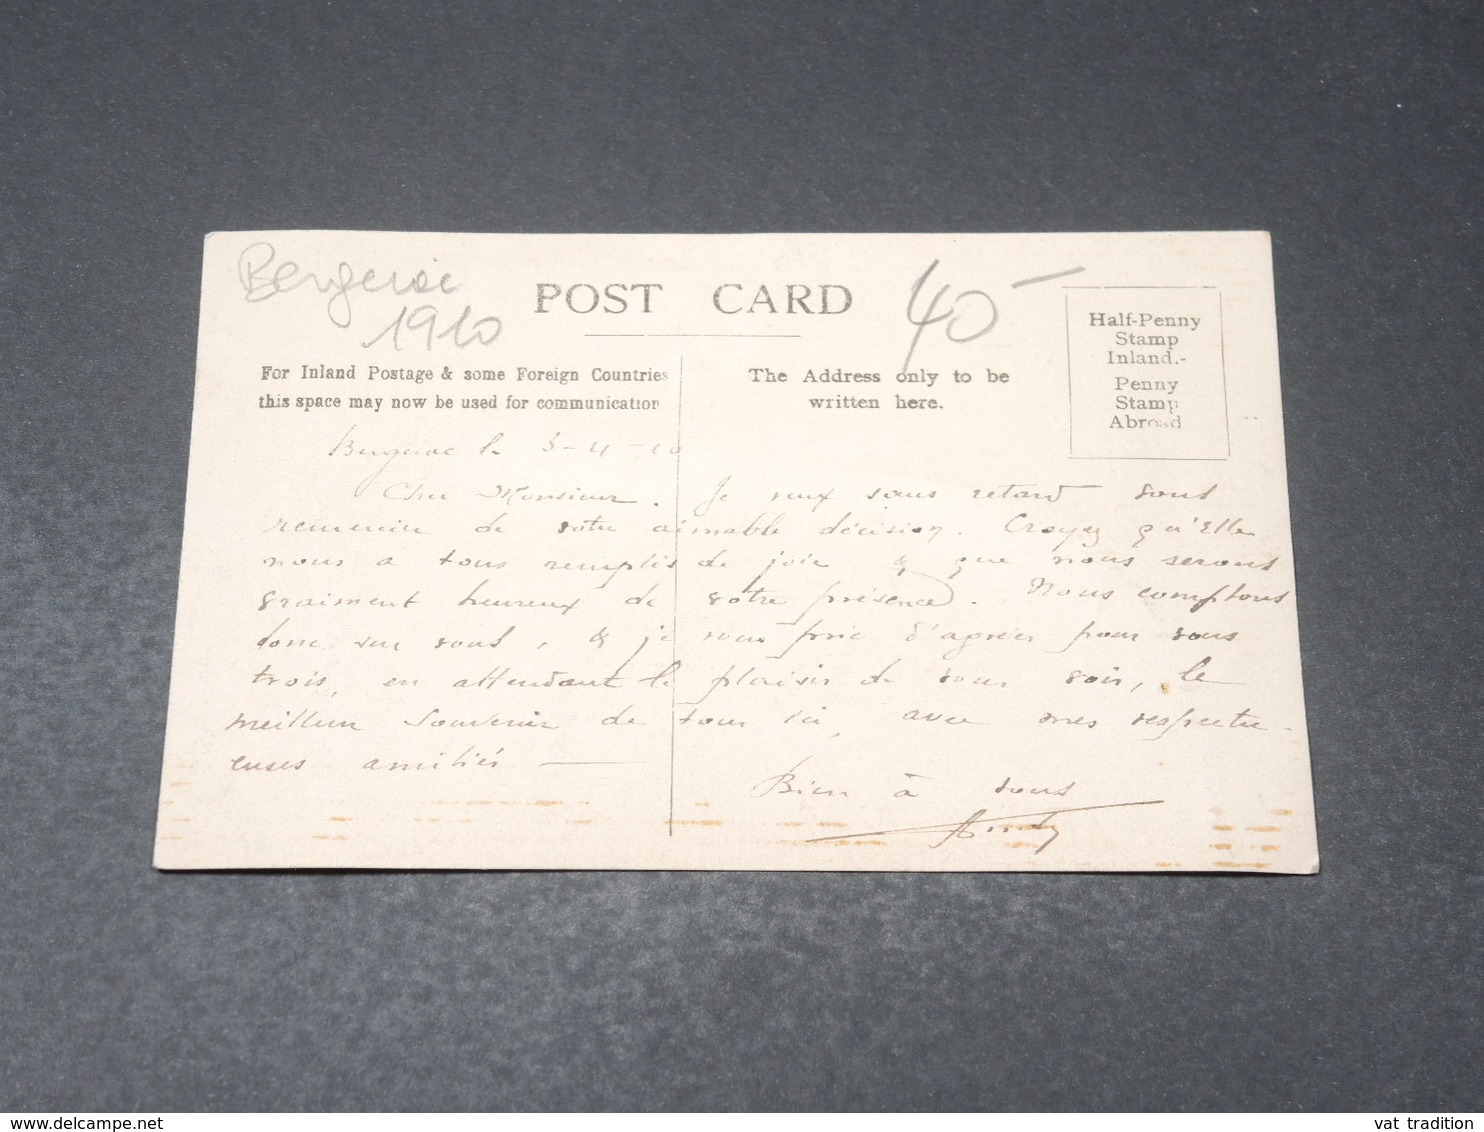 Bergerac
1910
POST CARD
40-
Half-Penny
Stamp
Inland.-
Penny
Stamp
Abroad
For Inland Postage & some Foreign Countries
this space may now be used for communication
The Address only to be
written here.
Bergerac le 3-4-10
Cher Monsieur. Je veux sans retard vous
remercier de votre aimable décision. Croyez qu'Elle
nous a tous remplis de joie & que nous serons
vraiment heureux de votre présence. Nous comptons
donc sur vous, & je vous prie d'agréer pour vous
trois, en attendant le plaisir de vous voir, le
meilleur souvenir de tous ici, avec mes respectu-
euses amitiés
Bien à vous
delcampe.net
vat tradition